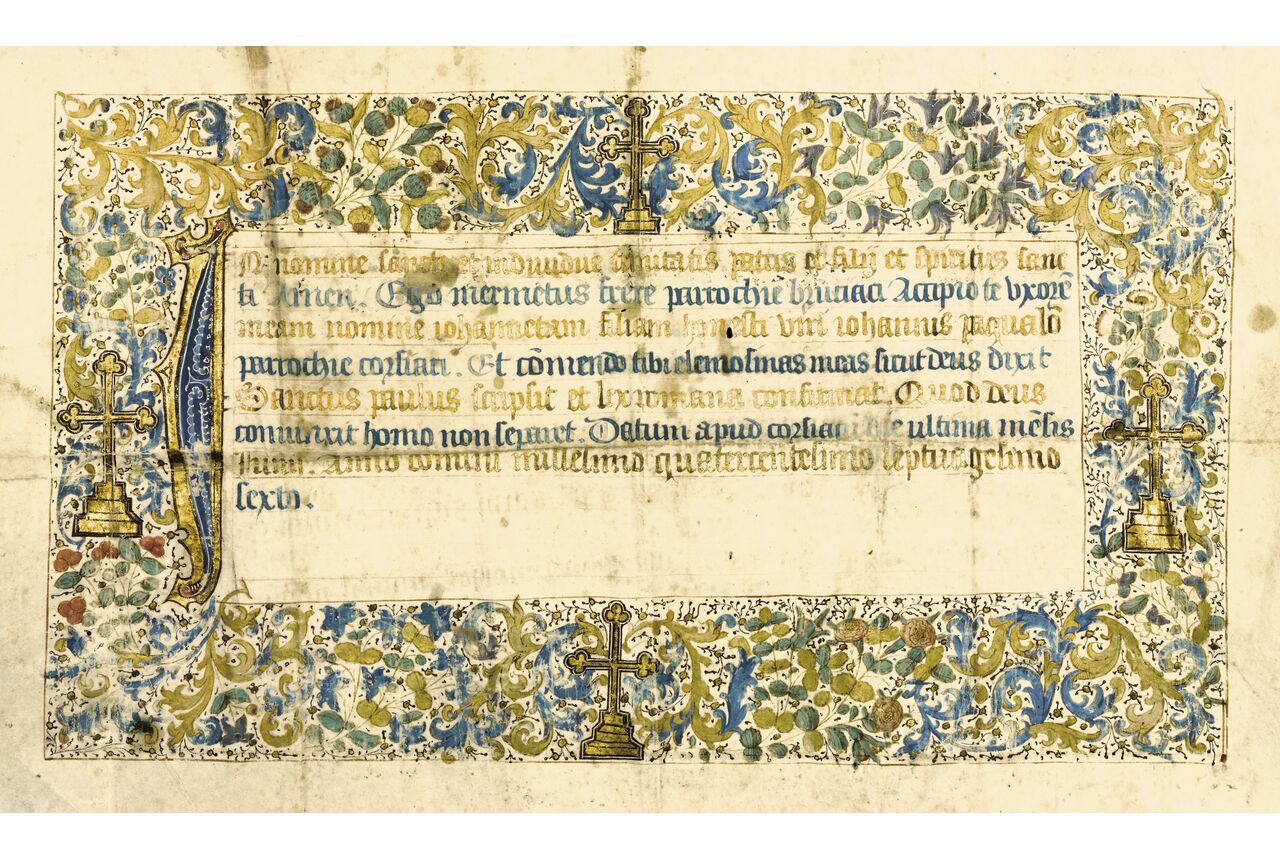 IN nomine sancte et individue trinitatis patris et filij et spiritus sanc
ti Amen. Ego mermetus frere parrochie bruciaci Accipio te vxorē
meam nomine iohannetam filiam honesti viri iohannis
parrochie corsiaci. Et cōmendo tibi elemosinas meas sicut deus dixit
Sanctus paulus scripsit et lex romana confirmat. Quod deus
coniunxit homo non separet. Datum apud corsiacū die ultima mēsis
Anno domini millesimo quatercentesimo septuagesimo
sexto.